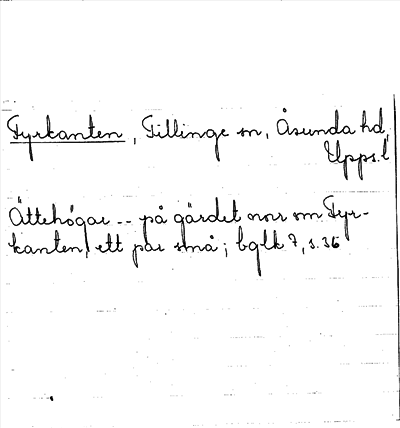 Fyrkanten, Tillinge sn, Åsunda hd,
Upps. l
Ättehögar -- på gärdet norr om Fyr-
kanten, ett par små; bglk 7, s. 36